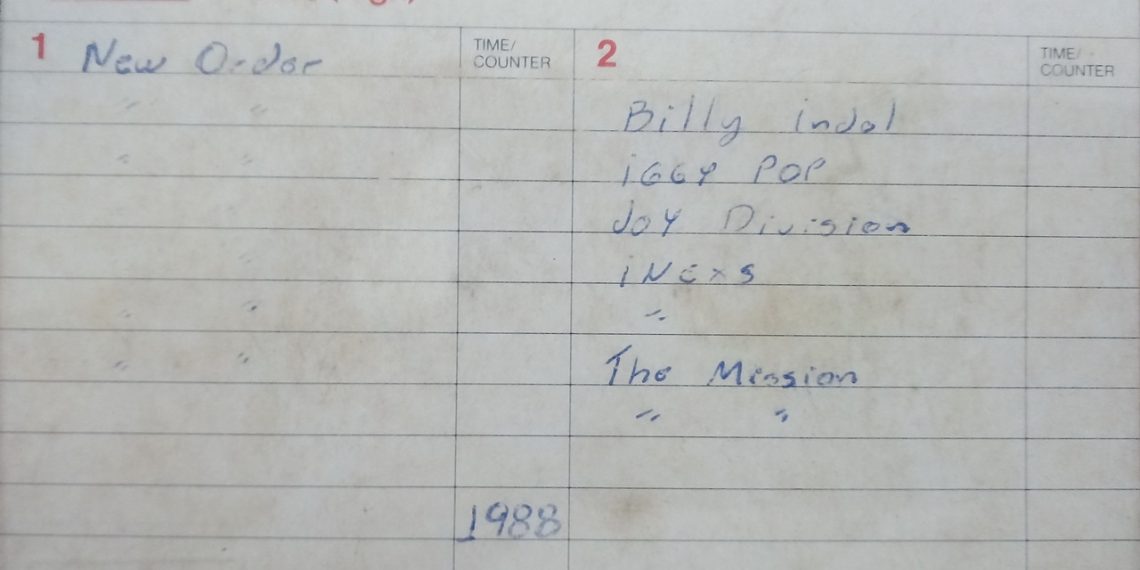 1 New Order TIME/ COUNTER 2 TIME/ COUNTER
" "
Billy indol
" "
iGGY POP
JOY Division
"
iNExS
" "
"
" "
The Mission
" "
1988